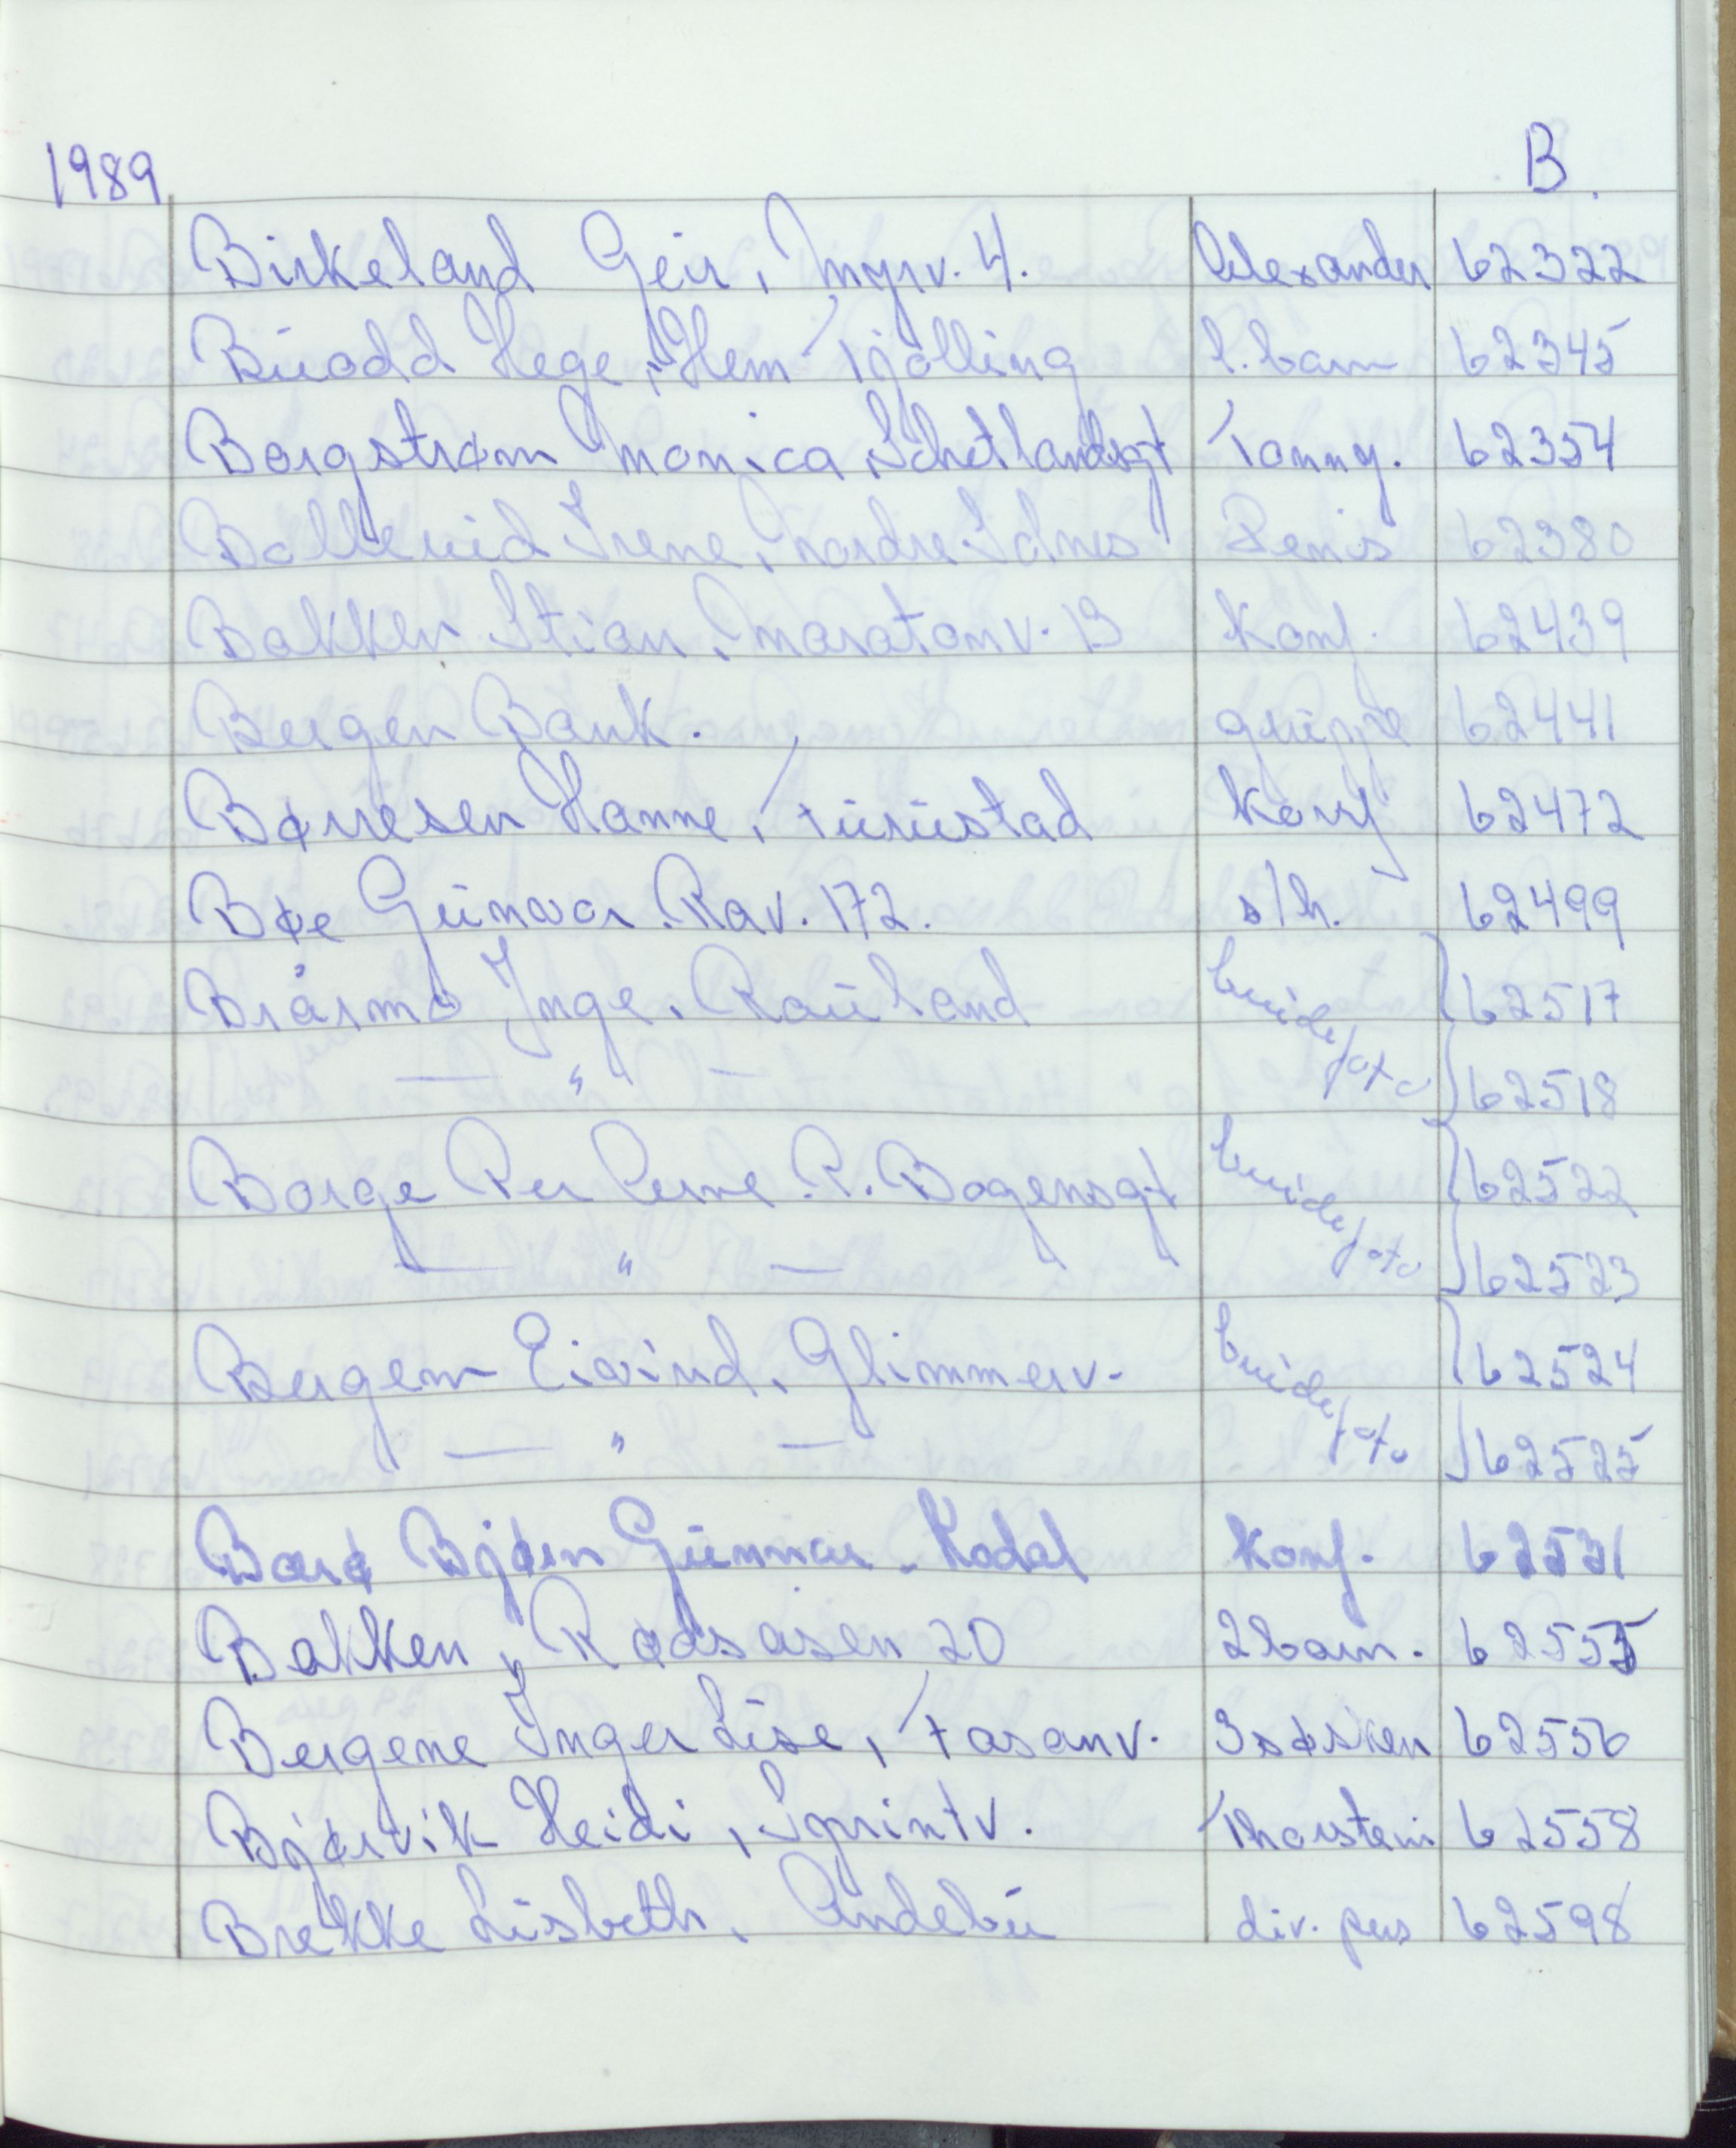 1989 B.
Birkeland Geir, Myrv. 4. Alexander 62322
Buodd Hege, Hem Tjølling l. barn 62345
Bergstrøm Monica, Schetlandsgt Tonny. 62354
Bollevid Irene, nordre Fokserød Denis 62380
Bakken Stian, Maratonv. 13 Konf. 62439
Bergen Bank. gruppe 62441
Børresen Hanne, Furustad Konf 62472
Bøe Gunvor. Rav. 172. s/h. 62499
Bråsmo Inge. Rauland brudefoto 62517
— " — 62518
Borge Per Arne. R. Bogensgt brudefoto 62522
— " — 62523
Bergem Eivind, Glimmerv. brudefoto 62524
— " — 62525
Barø Bjørn Gunnar. Kodal Konf. 62531
Bakken, Rødsåsen 20 2 barn. 62555
Bergene Inger Lise, Fasanv. 3 søsken 62556
Bjørvik Heidi, Sprintv. Thorstein 62558
Brekke Lisbeth, Andebu div. pers 62598